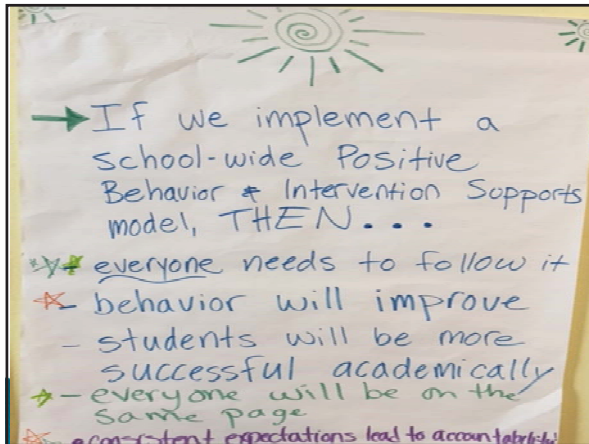 If we implement a
school-wide Positive
Behavior & Intervention Supports
model, THEN...
everyone needs to follow it
- behavior will improve
- students will be more
successful academically
- everyone will be on the
same page
consistent expectations lead to accountability